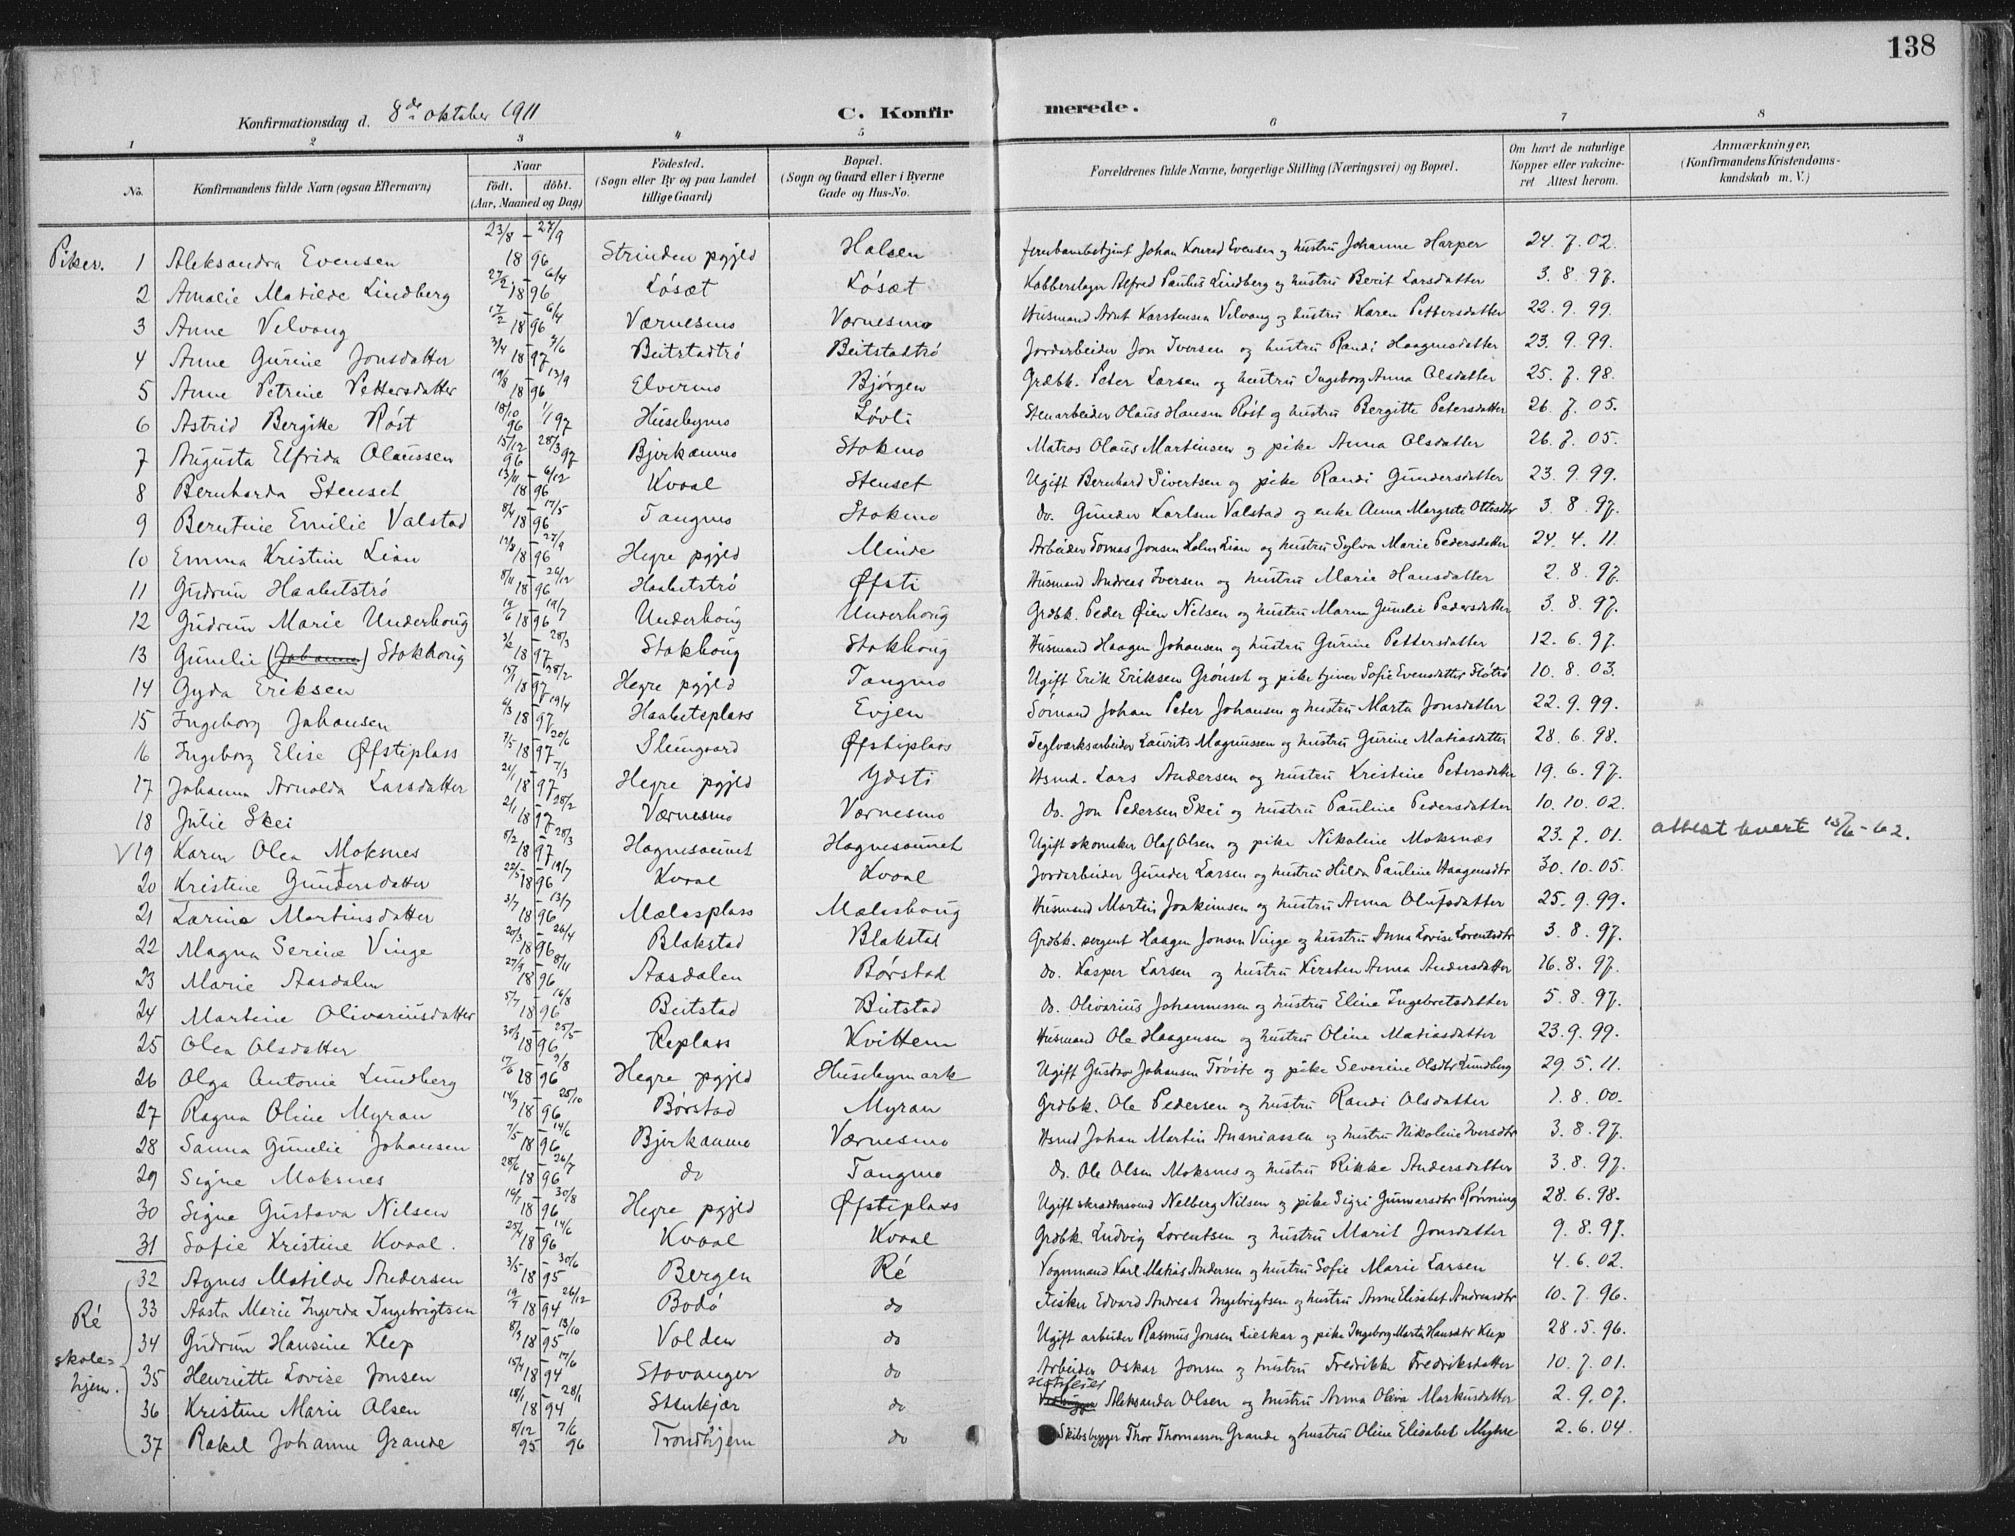 138
Konfirmationsdag d. 8de oktober 1911 C. Konfirmerede.
1 2 3 4 5 6 7 8
No. Konfirmandens fulde Navn (ogsaa Efternavn) Naar født. døbt. (Aar, Maaned og Dag) Fødested. (Sogn eller By og paa Landet tillige Gaard) Bopæl. (Sogn og Gaard eller i Byerne Gade og Hus-No. Forældrenes fulde Navne, borgerlige Stilling (Næringsvei) og Bopæl. Om havt de naturlige Kopper eller vakcineret Attest herom. Anmærkninger, (Konfirmandens Kristendomskundskab m. V.)
Piker. 1 Aleksandra Evensen 23/8 - 27/9 1896 Strinden pgjeld Halsen Jernbanebetjent Johan Konrad Evensen og hustru Johanne Harper 24.7.02.
2 Amalie Matilde Lindberg 27/2 - 6/4 1896 Løsæt Løsæt Kobberslager Alfred Paulus Lindberg og hustru Berit Larsdatter 3.8.97.
3 Anne Velvang 17/2 - 6/4 1896 Værnesmo Værnesmo Husmand Arnt Karstensen Velvang og hustru Karen Pettersdatter 22.9.99.
4 Anne Gurine Jonsdatter 3/4 - 7/6 1897 Beitstadtrø Beitstadtrø Jordarbeider Jon Iversen og hustru Randi Haagensdatter 23.9.99.
5 Anne Petrine Pettersdatter 19/8 - 13/9 1896 Elvermo Bjørgen Grdbk. Peter Larsen og hustru Ingeborg Anna Olsdatter 25.7.98.
6 Astrid Bergitte Røst 18/10 96 1/1 97 Husebymo Løvli Stenarbeider Olaus Hansen Røst og hustru Bergitte Petersdatter 26.7.05.
7 Augusta Elfrida Olaussen 15/12 96 28/3 97 Bjerkanmo Stokmo Matros Olaus Martinsen og pike Anna Olsdatter 26.7.05.
8 Bernharda Stenset 13/11 - 6/12 1896 Kvaal Stenset Ugift Bernhard Sivertsen og pike Randi Gundersdatter 23.9.99.
9 Berntine Emilie Valstad 8/4 - 17/5 1896 Tangmo Stokmo do. Gunder Karlsen Valstad og enke Anna Margrete Ottesdtr 3.8.97.
10 Emma Kristine Lian 12/8 - 27/9 1896 Hegre pgjeld Minde Arbeider Tomas Jonsen Holm Lian og hustru Sylva Marie Pedersdatter 24.4.11.
11 Gudrun Haabetstrø 8/11 - 26/12 1896 Haabetstrø Øfsti Husmand Andreas Iversen og hustru Marie Hansdatter 2.8.97.
12 Gudrun Marie Underhoug 19/6 - 19/7 1896 Underhoug Underhoug Grdbk. Peder Øien Nilsen og hustru Maren Gunelie Pedersdatter 3.8.97.
13 Gunelie (Johanna) Stokhoug 3/2 - 28/3 1897 Stokhoug Stokhoug Husmand Haagen Johansen og hustru Gurine Pettersdatter 12.6.97.
14 Gyda Eriksen 15/1 - 28/2 1897 Hegre pgjeld Tangmo Ugift Erik Eriksen Grønset og pike tjener Sofie Evensdatter Fløtrø 10.8.03.
15 Ingeborg Johansen 6/3 - 19/4 1897 Haabetsplass Evjen Sømand Johan Peter Johansen og hustru Marta Jonsdatter 22.9.99.
16 Ingeborg Elise Øfstiplass 7/5 - 20/6 1897 Øfstiplass Teglværksarbeider Laurits Magnussen og hustru Gurine Matiasdatter 28.6.98.
17 Johanna Arnolda Larsdatter 24/1 - 7/3 1897 Hegre pgjeld Ydsti Hsmd. Lars Andersen og hustru Kristine Petersdatter 19.6.97.
18 Julie Skei 2/1 - 28/2 1897 Værnesmo Værnesmo Do. Jon Pedersen Skei og hustru Pauline Pedersdatter 10.10.02.
V19 Karen Olea Moksnes 8/2 - 28/3 1897 Hognesaunet Hognesaunet Ugift skomaker Olaf Olsen og pike Nikoline Moksnæs 23.7.01. attest levert 15/6-62.
20 Kristine Gundersdatter 22/5 - 19/7 1896 Kvaal Kvaal Jordarbeider Gunder Larsen og hustru Hilda Pauline Haagensdtr 30.10.05.
21 Larine Martinsdatter 3/7 - 13/7 1896 Mælasplass Mælashoug Husmand Martin Joakimsen og hustru Anna Olufsdatter 25.9.99.
22 Magna Serine Vinge 20/3 - 26/4 1896 Blakstad Blakstad Grdbk. sergent Haagen Jonsen Vinge og hustru Anna Lovise Lorentsdtr 3.8.97.
23 Marie Aasdalen 27/9 - 8/11 1896 Aasdalen Børstad do. Kasper Larsen og hustru Kirsten Anna Andersdatter 16.8.97.
24 Martine Olivariusdatter 5/7 - 16/8 1896 Beitstad Beitstad Do. Olivarius Johannessen og hustru Eline Ingebretsdatter 5.8.97.
25 Olea Olsdatter 30/3 - 25/5 1896 Replass Kvittem Husmand Ole Haagensen og hustru Oline Matiasdatter 23.9.99.
26 Olga Antonie Lundberg 17/6 - 9/8 1896 Hegre pgjeld Husebymark Ugift Gustav Johansen Trøite og pike Severine Olsdtr Lundberg 29.5.11.
27 Ragna Oline Myran 14/9 - 25/10 1896 Børstad Myran Grdbk. Ole Pedersen og hustru Randi Olsdatter 1.8.00.
28 Sanna Gunelie Johansen 7/5 - 14/6 1896 Bjerkanmo Værnesmo Hsmd Johan Martin Ananiassen og hustru Nikoline Iversdtr 3.8.97.
29 Signe Moksnes 28/6 - 26/7 1896 do Tangmo Do. Ole Olsen Moksnes og hustru Rikke Andersdatter 3.8.97.
30 Signe Gustava Nilsen 16/7 - 30/8 1896 Hegre pgjeld Øfstiplass Ugift skræddersvend Nelberg Nilsen og pike Sigri Gunnarsdtr Rønning 28.6.98.
31 Sofie Kristine Kvaal. 25/4 - 14/6 1896 Kvaal Kvaal Grdbk. Ludvig Lorentsen og hustru Marit Jonsdatter 9.8.97.
Ré skolehjem.
32 Agnes Matilde Andersen 3/5 - 30/6 1895 Bergen Ré Vognmand Karl Matias Andersen og hustru Sofie Marie Larsen 4.6.02.
33 Aasta Marie Ingerda Ingebrigtsen 19/7 - 26/12 1894 Bodø do Fisker Edvard Andreas Ingebrigtsen og hustru Anne Elisabet Andreasdtr 10.7.96.
34 Gudrun Hansine Klep 8/9 - 13/10 1895 Volden do Ugift arbeider Rasmus Jonsen Lieskar og pike Ingeborg Marta Hansdtr Klep 28.5.96.
35 Henriette Lovise Jonsen 15/4 - 17/6 1894 Stavanger do Arbeider Oskar Jonsen og hustru Fredrikke Fredriksdatter 10.7.01.
36 Kristine Marie Olsen 18/1 - 28/1 1894 Stenkjær do Aleksander Olsen og hustru Anna Oliva Markusdatter 2.9.07.
37 Rakel Johanne Grande 8/12 95 7/6 96 Trondhjem do Skibsbygger Thor Thomassen Grande og hustru Oline Elisabet Myhre 2.6.04.